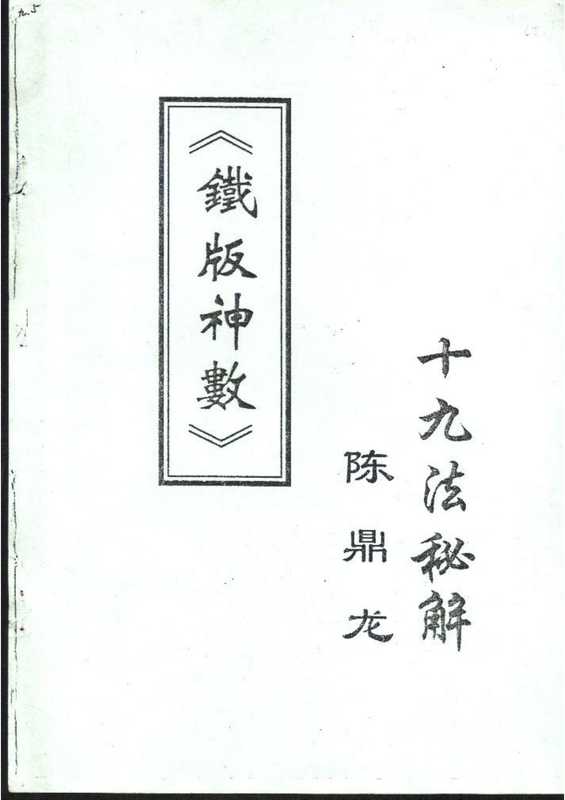 九.5
《鐵版神數》
十九法秘解
陈鼎龙